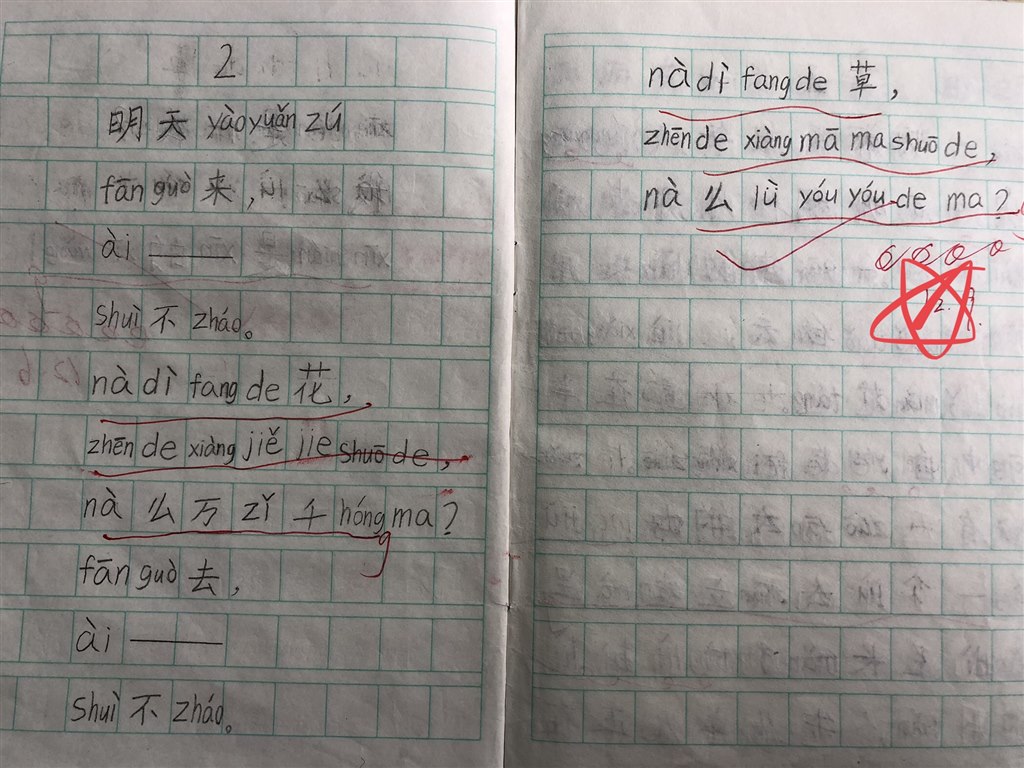 2
明天 yào yuǎn zú
fān guò 来,
ài ——
Shuì 不 zháo。
nà dì fang de 花,
zhēn de xiàng jiě jie shuō de,
nà 么 万 zǐ 千 hóng ma?
fān guò 去,
ài ——
Shuì 不 zháo。
nà dì fang de 草,
zhēn de xiàng mā ma shuō de,
nà 么 lǜ yóu yóu de ma?